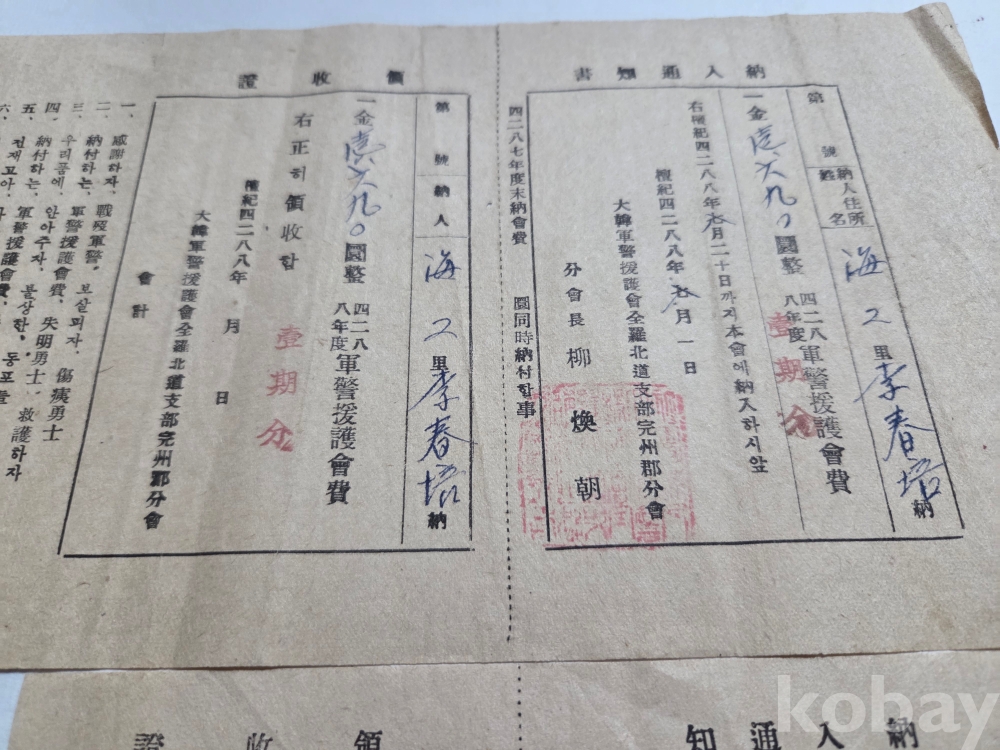 納入通知書
第 號 納入住所姓名 海 2 里 李春培 納
一金壹六九〇圜整 四二八八年度 軍警援護會費 壹期分
右檀紀四二八八年 月二十日까지本會에納入하시압
檀紀四二八八年 月一日
大韓軍警援護會全羅北道支部完州郡分會
分會長 柳煥朝
四二八七年度末納會費 圜同時納付할事
領收證
第 號 納人 海 2 里 李春培 納
一金壹六九〇圜整 四二八八年度 軍警援護會費 壹期分
右正히領收함
檀紀四二八八年 月 日
大韓軍警援護會全羅北道支部完州郡分會
會計
一、感謝하자、戰疫軍警。보살피자、傷痍勇士
二、納付하는、軍警援護會費、失明勇士、救護하자
三、우리품에、안아주자、불상한、동포를
四、納付하는、軍警援護會費、
五、전재고아、
六、
納入通知
領收證
kobay